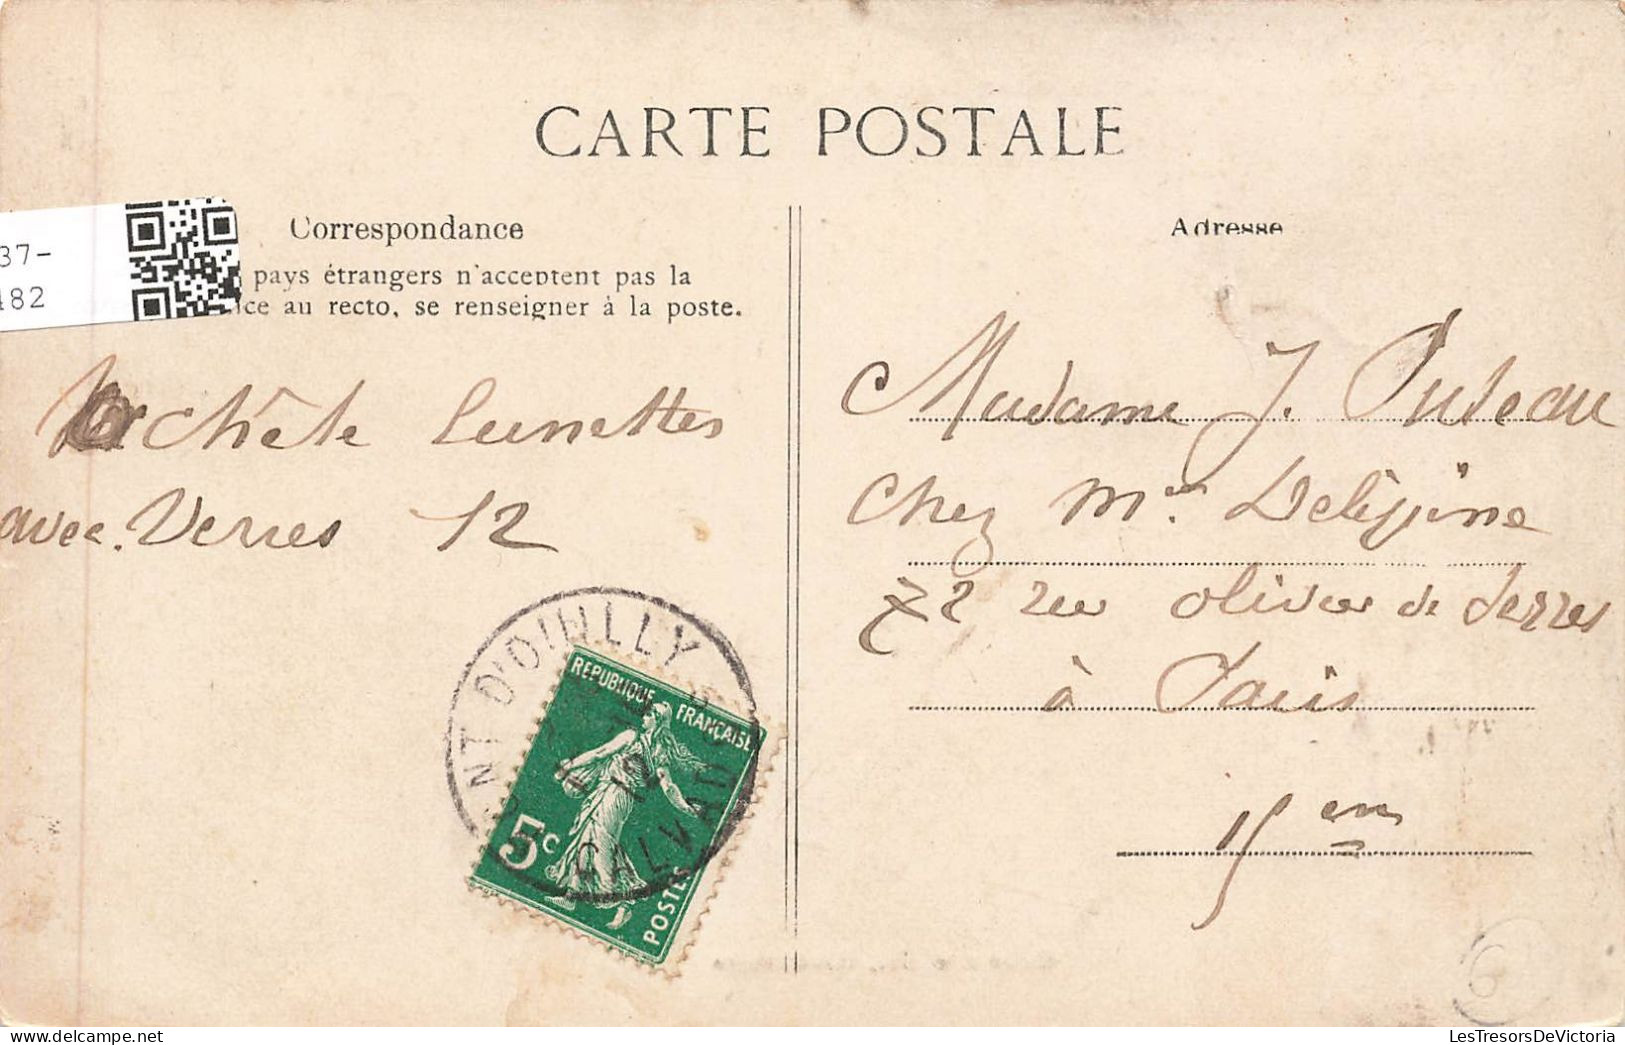 CARTE POSTALE
Correspondance
pays étrangers n'acceptent pas la
ce au recto, se renseigner à la poste.
37-
482
achète lunettes
avec. Verres 12
Adresse
Madame J. Puteau
chez Mme Delépine
72 rue olivier de Serres
à Paris
15 em
NT D'OUILLY
12
CALVADOS
REPUBLIQUE FRANÇAISE
5c
POSTES
6
LesTresorsDeVictoria